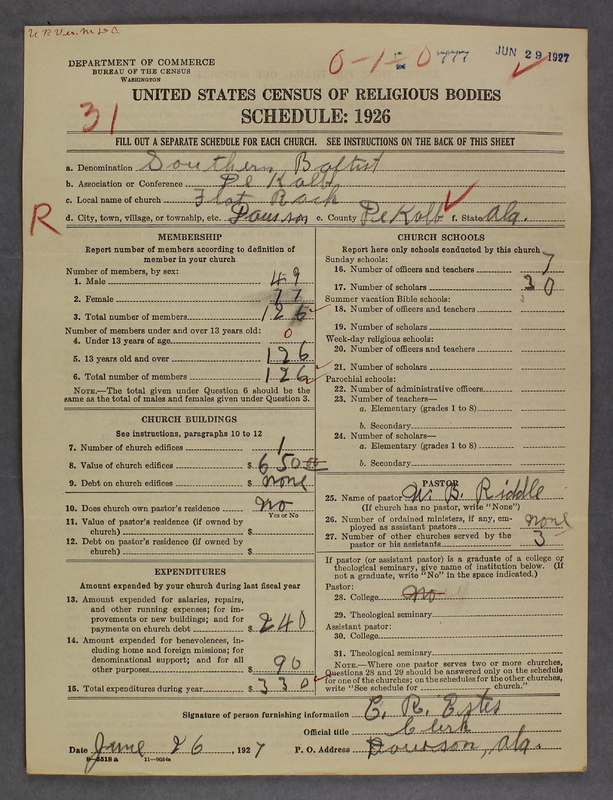 DEPARTMENT OF COMMERCE
BUREAU OF THE CENSUS
WASHINGTON
0-1-0
777
JUN 29 1927
31
UNITED STATES CENSUS OF RELIGIOUS BODIES
SCHEDULE: 1926
FILL OUT A SEPARATE SCHEDULE FOR EACH CHURCH. SEE INSTRUCTIONS ON THE BACK OF THIS SHEET
a. Denomination Southern Baptist
b. Association or Conference De Kalb
c. Local name of church Flat Rock
R
d. City, town, village, or township, etc. Dawson e. County De Kalb f. State Ala.
MEMBERSHIP
Report number of members according to definition of
member in your church
Number of members, by sex:
1. Male 49
2. Female 77
3. Total number of members 126
Number of members under and over 13 years old:
4. Under 13 years of age 0
5. 13 years old and over 126
6. Total number of members 126
NOTE.—The total given under Question 6 should be the
same as the total of males and females given under Question 3.
CHURCH BUILDINGS
See instructions, paragraphs 10 to 12
7. Number of church edifices 1
8. Value of church edifices $ 650 00
9. Debt on church edifices $ none
10. Does church own pastor's residence no
Yes or No
11. Value of pastor's residence (if owned by
church) $
12. Debt on pastor's residence (if owned by
church) $
EXPENDITURES
Amount expended by your church during last fiscal year
13. Amount expended for salaries, repairs,
and other running expenses; for im-
provements or new buildings; and for
payments on church debt $ 240
14. Amount expended for benevolences, in-
cluding home and foreign missions; for
denominational support; and for all
other purposes $ 90
15. Total expenditures during year $ 330
CHURCH SCHOOLS
Report here only schools conducted by this church
Sunday schools:
16. Number of officers and teachers 7
17. Number of scholars 30
Summer vacation Bible schools:
18. Number of officers and teachers
19. Number of scholars
Week-day religious schools:
20. Number of officers and teachers
21. Number of scholars
Parochial schools:
22. Number of administrative officers
23. Number of teachers—
a. Elementary (grades 1 to 8)
b. Secondary
24. Number of scholars—
a. Elementary (grades 1 to 8)
b. Secondary
PASTOR
25. Name of pastor W. B. Riddle
(If church has no pastor, write "None")
26. Number of ordained ministers, if any, em-
ployed as assistant pastors none
27. Number of other churches served by the
pastor or his assistants 3
If pastor (or assistant pastor) is a graduate of a college or
theological seminary, give name of institution below. (If
not a graduate, write "No" in the space indicated.)
Pastor:
28. College No
29. Theological seminary
Assistant pastor:
30. College
31. Theological seminary
NOTE.—Where one pastor serves two or more churches,
Questions 28 and 29 should be answered only on the schedule
for one of the churches; on the schedules for the other churches,
write "See schedule for church."
Signature of person furnishing information C. R. Estes
Official title Clerk
Date June 26, 1927 P. O. Address Dawson, Ala.
8-5518 a 11-9054a